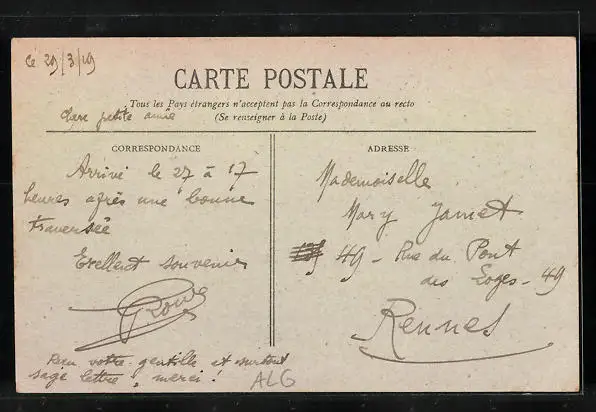 Ce 29/3/19
CARTE POSTALE
Tous les Pays étrangers n'acceptent pas la Correspondance au recto
(Se renseigner à la Poste)
Chère petite amie
CORRESPONDANCE
Arrivé le 27 à 17
heures après une bonne
traversée
Exellent souvenir
Reçu votre gentille et surtout
sage lettre, merci !
ALG
ADRESSE
Mademoiselle
Mary Jamet
49 - Rue du Pont
des Loges - 49
Rennes